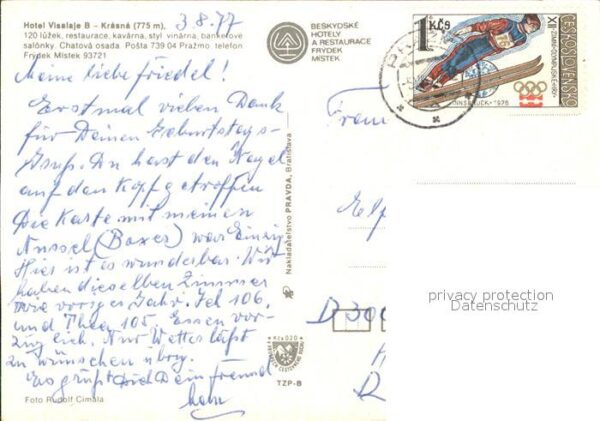 Hotel Visalaje B - Krásná (775 m),
120 lůžek, restaurace, kavárna, styl. vinárna, banketové
salónky. Chatová osada. Pošta 739 04 Pražmo telefon
Frýdek Místek 93721
3.8.77
BESKYDSKÉ
HOTELY
A RESTAURACE
FRÝDEK
MÍSTEK
1 Kčs
ČESKOSLOVENSKO
XII ZIMNÍ OLYMPIJSKÉ HRY
INNSBRUCK • 1976
Meine liebe Friedel!
Erstmal vielen Dank
für Deinen Geburtstags-
Gruß. Du hast den Nagel
auf den Kopf getroffen
Die Karte mit meinen
(Boxer) war Einzig
Hier ist es wunderbar. Wir
haben dieselben Zimmer
wie voriges Jahr. 106,
und 105. Essen vor-
züglich. Nur Wetter läßt
zu wünschen übrig.
Es grüßt Dich Dein Freund
Nakladatelství PRAVDA, Bratislava
D 300
privacy protection
Datenschutz
Kčs 0,20
TZP-B
Foto Rudolf Cimala